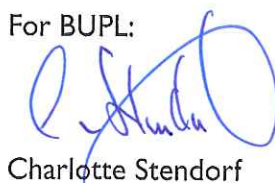 For BUPL:
Charlotte Stendorf